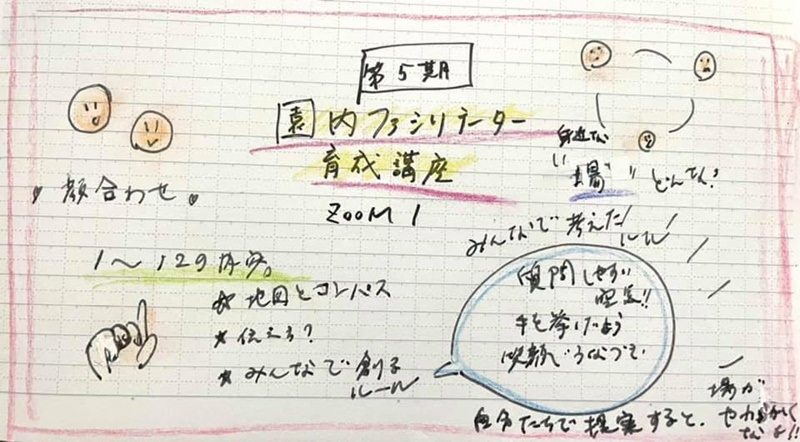 第5期
園内ファシリテーター
育成講座
ZOOM 1
♥ 顔合わせ ♥
身近な
"場" どんな?
みんなで考えた
ルール
1〜129
★ 地図とコンパス
★ 伝えろ?
★ みんなで創る
ルール
質問しやすい
空気!!
手を挙げたよう
笑顔でうなづき
自分たちで提案すると、
場が
やわらかく
なる!!